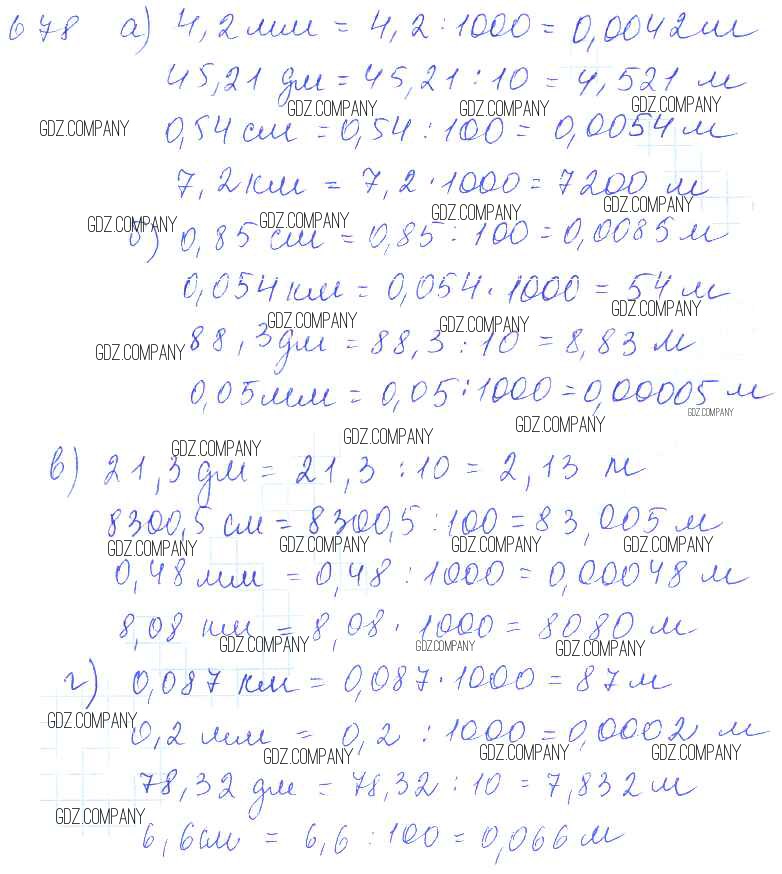 678 а) 4,2 мм = 4,2 : 1000 = 0,0042 м
45,21 дм = 45,21 : 10 = 4,521 м
GDZ.COMPANY GDZ.COMPANY GDZ.COMPANY
GDZ.COMPANY
0,54 см = 0,54 : 100 = 0,0054 м
7,2 км = 7,2 · 1000 = 7200 м
GDZ.COMPANY GDZ.COMPANY GDZ.COMPANY GDZ.COMPANY
б) 0,85 см = 0,85 : 100 = 0,0085 м
0,054 км = 0,054 · 1000 = 54 м
GDZ.COMPANY GDZ.COMPANY GDZ.COMPANY
88,3 дм = 88,3 : 10 = 8,83 м
GDZ.COMPANY
0,05 мм = 0,05 : 1000 = 0,00005 м
GDZ.COMPANY
GDZ.COMPANY GDZ.COMPANY GDZ.COMPANY
в) 21,3 дм = 21,3 : 10 = 2,13 м
8300,5 см = 8300,5 : 100 = 83,005 м
GDZ.COMPANY GDZ.COMPANY GDZ.COMPANY GDZ.COMPANY
0,48 мм = 0,48 : 1000 = 0,00048 м
8,08 км = 8,08 · 1000 = 8080 м
GDZ.COMPANY GDZ.COMPANY GDZ.COMPANY
г) 0,087 км = 0,087 · 1000 = 87 м
GDZ.COMPANY
0,2 мм = 0,2 : 1000 = 0,0002 м
GDZ.COMPANY GDZ.COMPANY GDZ.COMPANY
78,32 дм = 78,32 : 10 = 7,832 м
GDZ.COMPANY
6,6 см = 6,6 : 100 = 0,066 м